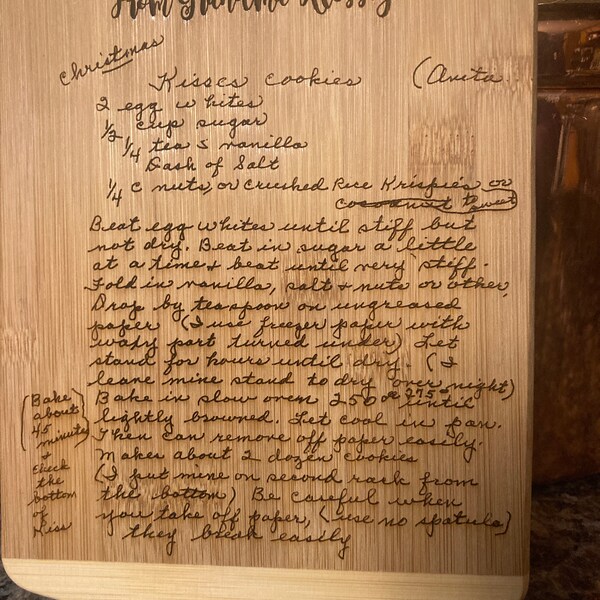 From Grandma
Christmas
Kisses Cookies (Anita
2 egg whites
1/2 cup sugar
1/4 teas vanilla
Dash of Salt
1/4 c nuts, or crushed Rice Krispies or
cocoanut to sweet
Beat egg whites until stiff but
not dry. Beat in sugar a little
at a time & beat until very stiff.
Fold in vanilla, salt & nuts or other,
Drop by teaspoon on ungreased
paper (I use freezer paper with
waxy part turned under) Let
stand for hours until dry. (I
leave mine stand to dry over night)
Bake in slow oven 250° or 275° until
lightly browned. Let cool in pan.
Then can remove off paper easily.
Makes about 2 dozen cookies
(I put mine on second rack from
the bottom) Be careful when
you take off paper, (use no spatula)
they break easily
(Bake
about
45
minutes)
&
Check
the
bottom
of
Kiss